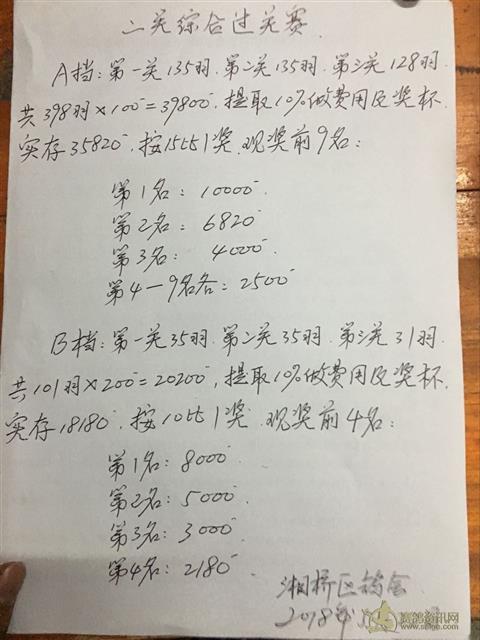 二关综合过关赛.
A挡:第一关135羽.第二关135羽.第三关128羽.
共398羽×100=39800,提取10%做费用及奖杯.
实存35820,按15比1奖,现奖前9名:
第1名:10000
第2名:6820
第3名:4000
第4-9名各:2500
B档:第一关35羽.第二关35羽.第三关31羽.
共101羽×200=20200,提取10%做费用及奖杯.
实存18180,按10比1奖.现奖前4名:
第1名:8000
第2名:5000
第3名:3000
第4名:2180
湘桥区鸽会
2018年
赛鸽资讯网
www.saige.com